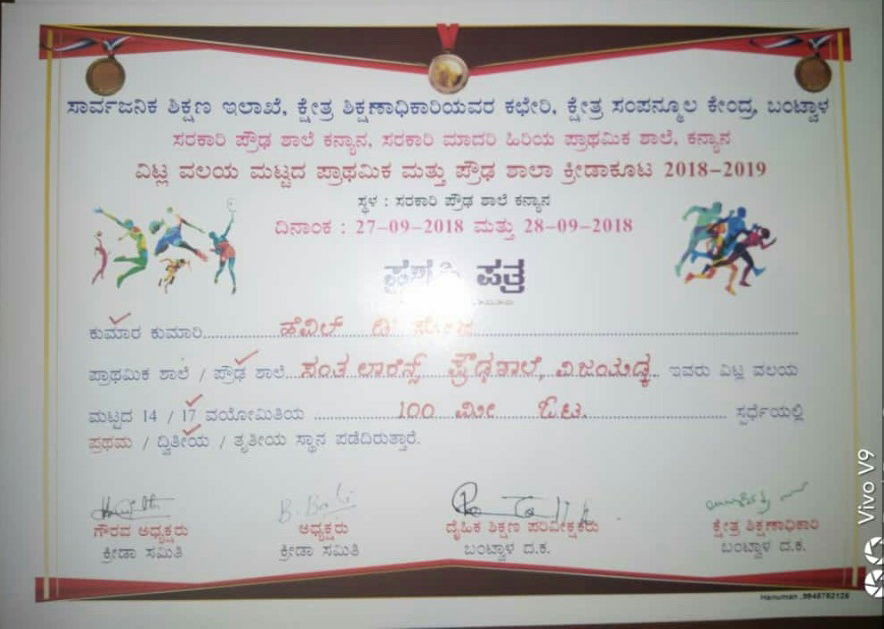 ಸಾರ್ವಜನಿಕ ಶಿಕ್ಷಣ ಇಲಾಖೆ, ಕ್ಷೇತ್ರ ಶಿಕ್ಷಣಾಧಿಕಾರಿಯವರ ಕಛೇರಿ, ಕ್ಷೇತ್ರ ಸಂಪನ್ಮೂಲ ಕೇಂದ್ರ, ಬಂಟ್ವಾಳ
ಸರಕಾರಿ ಪ್ರೌಢ ಶಾಲೆ ಕನ್ಯಾನ, ಸರಕಾರಿ ಮಾದರಿ ಹಿರಿಯ ಪ್ರಾಥಮಿಕ ಶಾಲೆ, ಕನ್ಯಾನ
ವಿಟ್ಲ ವಲಯ ಮಟ್ಟದ ಪ್ರಾಥಮಿಕ ಮತ್ತು ಪ್ರೌಢ ಶಾಲಾ ಕ್ರೀಡಾಕೂಟ 2018-2019
ಸ್ಥಳ : ಸರಕಾರಿ ಪ್ರೌಢ ಶಾಲೆ ಕನ್ಯಾನ
ದಿನಾಂಕ : 27-09-2018 ಮತ್ತು 28-09-2018
ಪತ್ರ
ಕುಮಾರ ಕುಮಾರಿ
ಪ್ರಾಥಮಿಕ ಶಾಲೆ / ಪ್ರೌಢ ಶಾಲೆ ಸಂತ ಲಾರೆನ್ಸ್ ಪ್ರೌಢಶಾಲೆ, ಇವರು ವಿಟ್ಲ ವಲಯ
ಮಟ್ಟದ 14 / 17 ವಯೋಮಿತಿಯ 100 ಮೀ ಓಟ. ಸ್ಪರ್ಧೆಯಲ್ಲಿ
ಪ್ರಥಮ / ದ್ವಿತೀಯ / ತೃತೀಯ ಸ್ಥಾನ ಪಡೆದಿರುತ್ತಾರೆ.
ಗೌರವ ಅಧ್ಯಕ್ಷರು
ಕ್ರೀಡಾ ಸಮಿತಿ
ಅಧ್ಯಕ್ಷರು
ಕ್ರೀಡಾ ಸಮಿತಿ
ದೈಹಿಕ ಶಿಕ್ಷಣ ಪರಿವೀಕ್ಷಕರು
ಬಂಟ್ವಾಳ ದ.ಕ.
ಕ್ಷೇತ್ರ ಶಿಕ್ಷಣಾಧಿಕಾರಿ
ಬಂಟ್ವಾಳ ದ.ಕ.
Hanuman
Vivo V9